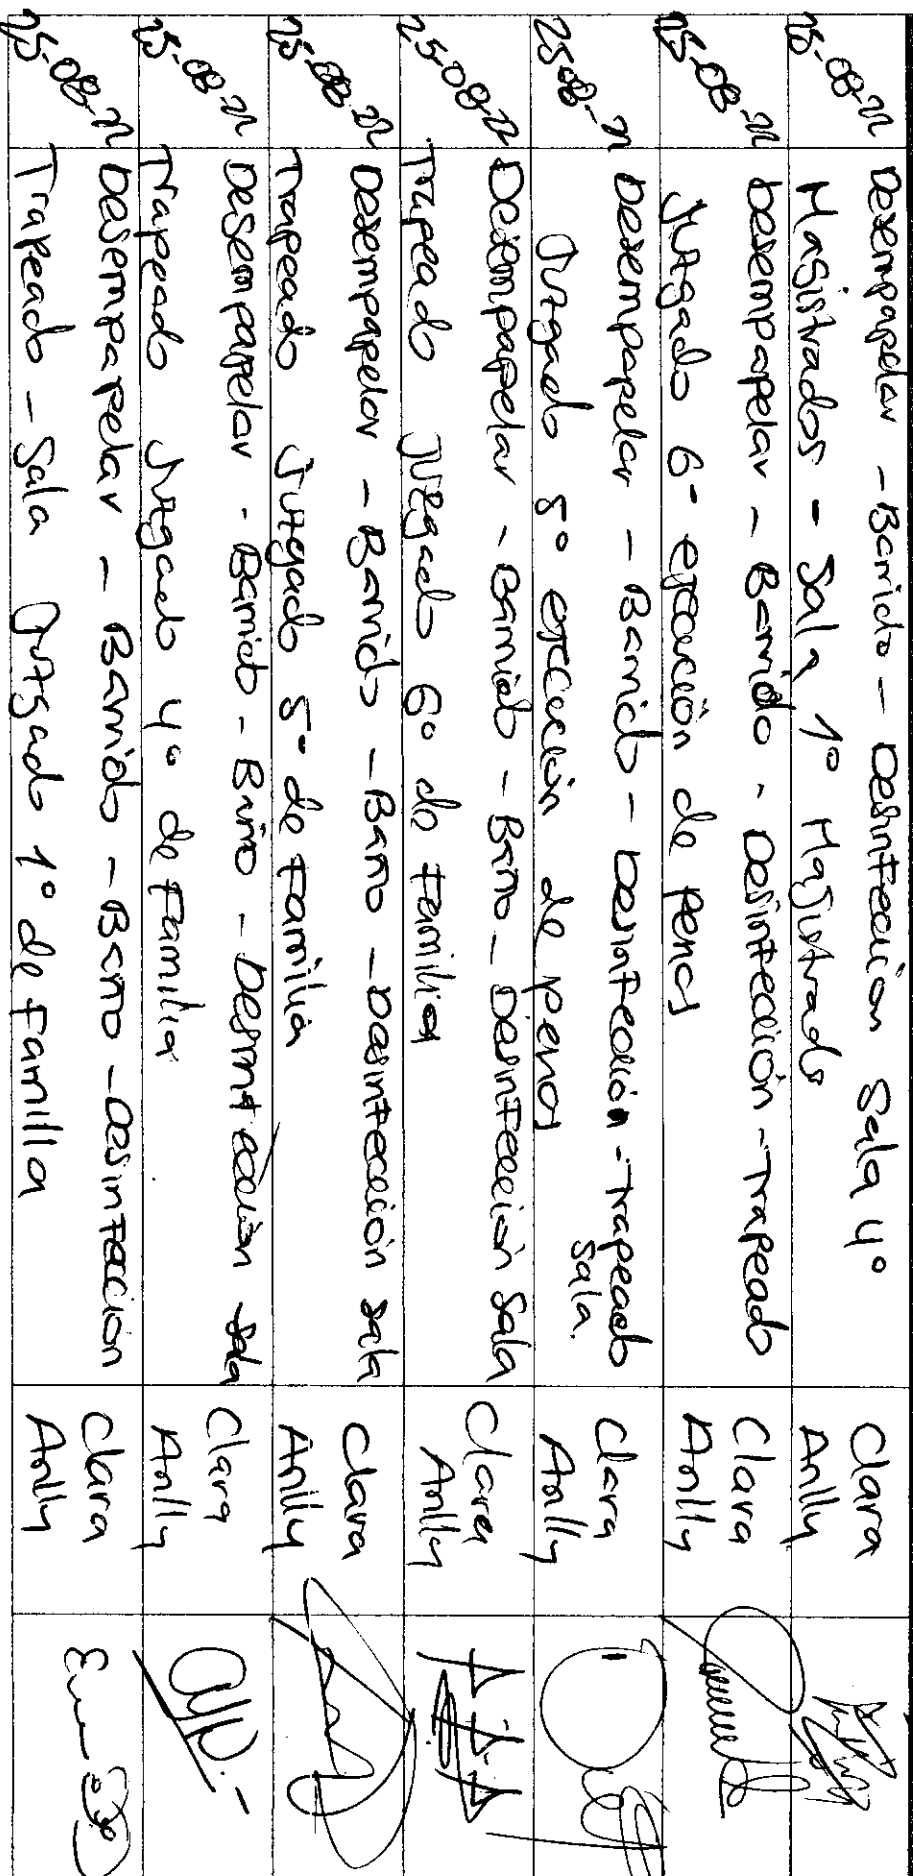 25-08-22
Desempapelar - Barrido - Desinfección Sala 4°
Magistrados - Sala 1° Magistrado
Clara
Anlly
25-08-22
Desempapelar - Barrido - Desinfección - Trapeado
Juzgado 6° ejecución de penas
Clara
Anlly
25-08-22
Desempapelar - Barrido - Desinfección - Trapeado
Juzgado 5° ejecución de penas sala.
Clara
Anlly
25-08-22
Desempapelar - Barrido - Baño - Desinfección Sala
Trapeado Juzgado 6° de familia
Clara
Anlly
25-08-22
Desempapelar - Barrido - Baño - Desinfección sala
Trapeado Juzgado 5° de familia
Clara
Anlly
25-08-22
Desempapelar - Barrido - Baño - Desinfección sala
Trapeado Juzgado 4° de familia
Clara
Anlly
25-08-22
Desempapelar - Barrido - Baño - Desinfección
Trapeado - Sala Juzgado 1° de familia
Clara
Anlly